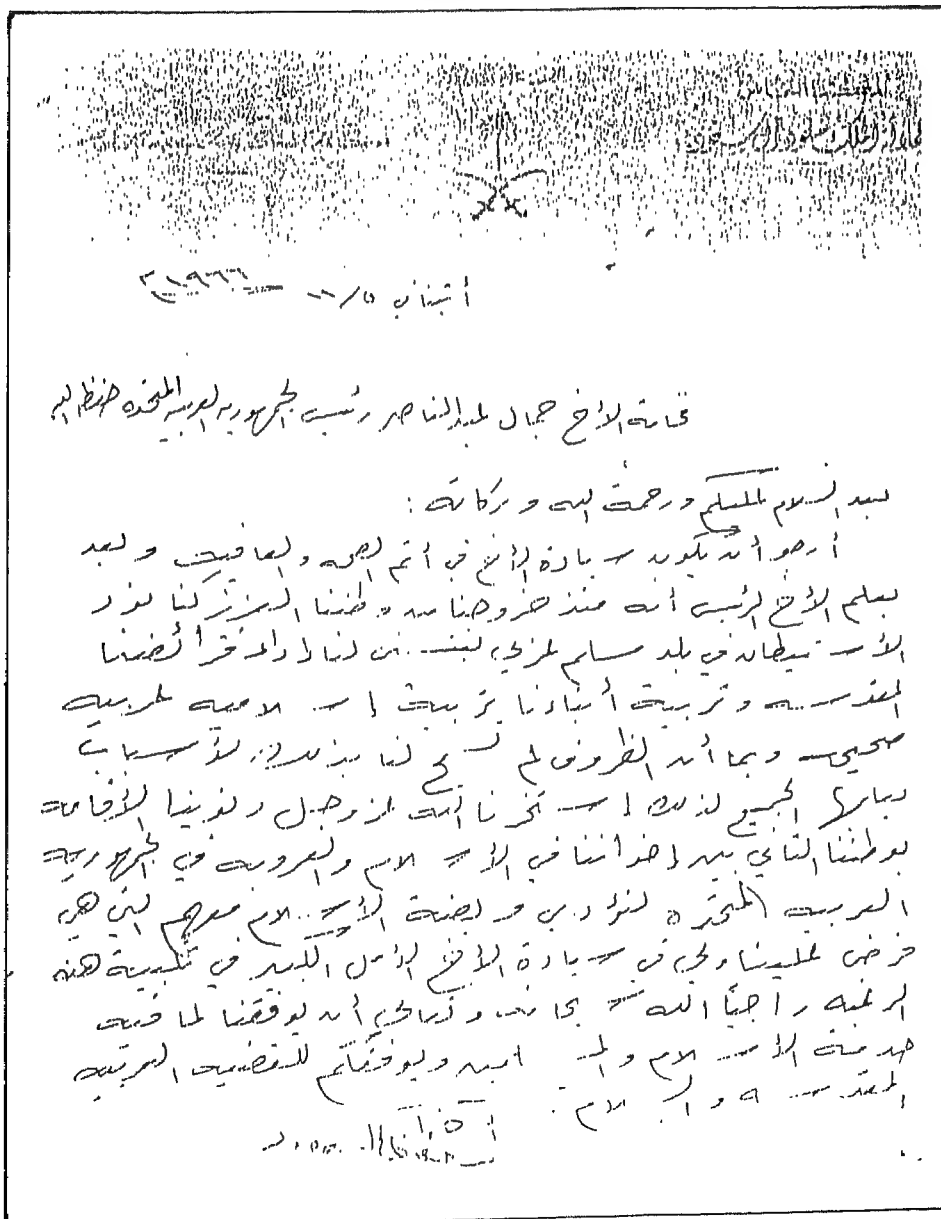 أثينا في
١٩٦٦
فخامة الأخ جمال عبد الناصر رئيس الجمهورية العربية المتحدة حفظه الله
بعد السلام عليكم ورحمة الله وبركاته :
أرجو أن يكون سيادة الأخ في أتم الصحه والعافيه وبعد
يعلم الأخ الرئيس أنه منذ خروجنا من وطننا العزيز كنا نود
الأستيطان في بلد مسلم عربي لنا أداء فرائضنا
المقدسه وتربية أبناءنا تربية إسلاميه عربيه
صحيحه وبما أن الظروف لم تسمح لنا بذلك لأسباب
الجميع لذلك إستخرنا الله عز وجل ونوينا الأقامه
بوطننا الثاني بين إخواننا في الأسلام والعروبه في الجمهوريه
العربيه المتحده لنؤدي فريضة الأسلام معهم التي هي
فرض علينا ولي في سيادة الأخ الأمل الكبير في تلبية هذه
الرغبه راجيًا الله سبحانه وتعالى أن يوفقنا لما فيه
خدمة الأسلام والمسلمين ويوفقكم للقضيه العربيه
المقدسه والسلام .